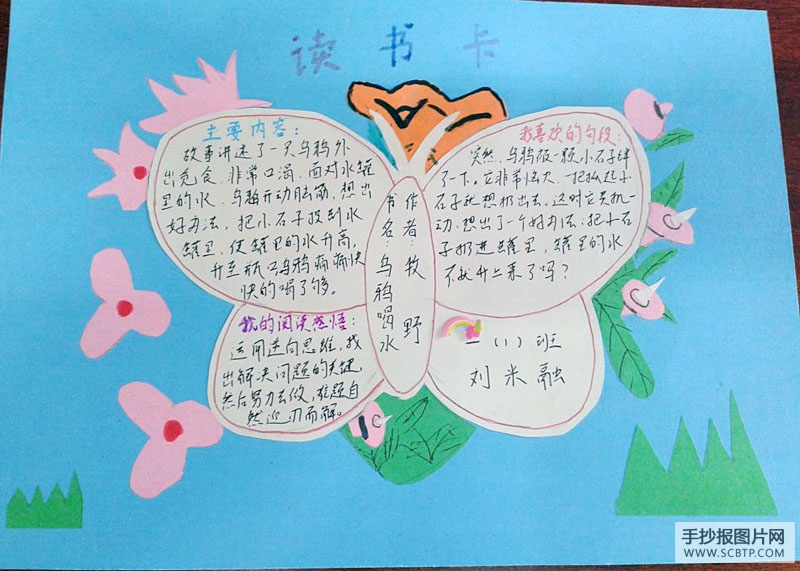 读书卡
主要内容:
故事讲述了一只乌鸦外
出觅食、非常口渴、面对水罐
里的水、乌鸦开动脑筋,想出
好办法,把小石子投到水
罐里,使罐里的水升高,
升至瓶口乌鸦痛痛快
快的喝了够。
我喜欢的句段:
突然,乌鸦被一颗小石子绊
了一下,它非常恼火、一把抓起小
石子就想扔出去,这时它灵机一
动,想出了一个好办法:把小石
子扔进罐里,罐里的水
不就升上来了吗?
作者:牧野
书名:乌鸦喝水
我的阅读感悟:
运用逆向思维,找
出解决问题的关键,
然后努力去做,难题自
然迎刃而解。
一(1)班
刘米融
手抄报图片网
WWW.SCBTP.COM